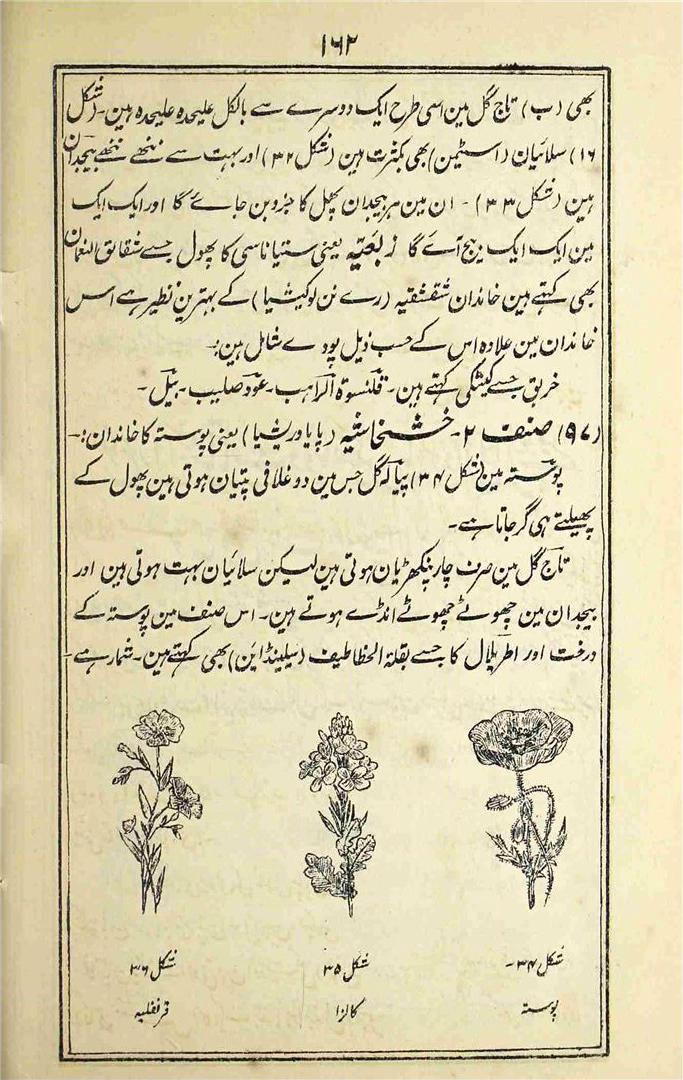 ۱۶۲
بھی (ب) تاج گل مین اسی طرح ایک دوسرے سے بالکل علیحدہ علیحدہ ہین۔ (شکل
۱۶) سلائیان (اسٹیمن) بھی بکثرت ہین (شکل ۳۲) اور بہت سے ننھے ننھے بیجدان
ہین (شکل ۳۳)۔ ان مین ہر بیجدان پھل کا جزو بن جائے گا اور ایک ایک
مین ایک ایک بیج آئے گا یعنی ستیاناسی کا پھول جسے شقائق النعمان
بھی کہتے ہین خاندان شقشقیہ (رے نن لوکیشیا) کے بہترین نظیر ہے اس
خاندان مین علاوہ اس کے حسب ذیل پودے شامل ہین:۔
خربق جسے کیٹکی کہتے ہین۔ قلنسوۃ الراہب۔ عود صلیب۔ بیل۔
(۹۷) صنف ۲۔ خشخاشیہ (پاپاوریشیا) یعنی پوستہ کا خاندان:۔
پوستہ مین (شکل ۳۴) پیالہ گل جس مین دو غلافی پتیان ہوتی ہین پھول کے
پھیلتے ہی گر جاتا ہے۔
تاج گل مین صرف چار پنکھڑیان ہوتی ہین لیکن سلائیان بہت ہوتی ہین اور
بیجدان مین چھوٹے چھوٹے انڈے ہوتے ہین۔ اس صنف مین پوستہ کے
درخت اور اطریلال کا جسے بقلۃ الخطاطیف (سیلینڈاین) بھی کہتے ہین۔ شمار ہے۔
شکل ۳۴۔
پوستہ
شکل ۳۵
کالزا
شکل ۳۶
قرنفلیہ